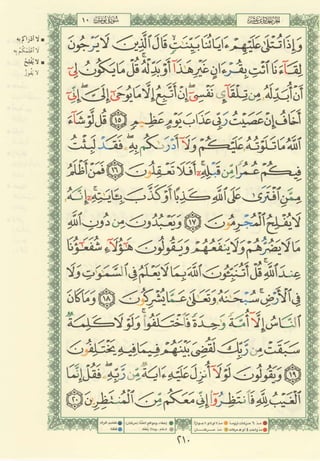 سورة يونس ١٠
وَإِذَا تُتْلَىٰ عَلَيْهِمْ ءَايَاتُنَا بَيِّنَٰتٍ قَالَ ٱلَّذِينَ لَا يَرْجُونَ
لِقَآءَنَا ٱئْتِ بِقُرْءَانٍ غَيْرِ هَٰذَآ أَوْ بَدِّلْهُ قُلْ مَا يَكُونُ لِىٓ
أَنْ أُبَدِّلَهُۥ مِن تِلْقَآئِ نَفْسِىٓ إِنْ أَتَّبِعُ إِلَّا مَا يُوحَىٰٓ إِلَىَّ إِنِّىٓ
أَخَافُ إِنْ عَصَيْتُ رَبِّى عَذَابَ يَوْمٍ عَظِيمٍ ١٥ قُل لَّوْ شَآءَ
ٱللَّهُ مَا تَلَوْتُهُۥ عَلَيْكُمْ وَلَآ أَدْرَىٰكُم بِهِۦ فَقَدْ لَبِثْتُ
فِيكُمْ عُمُرًا مِّن قَبْلِهِۦٓ أَفَلَا تَعْقِلُونَ ١٦ فَمَنْ أَظْلَمُ
مِمَّنِ ٱفْتَرَىٰ عَلَى ٱللَّهِ كَذِبًا أَوْ كَذَّبَ بِـَٔايَٰتِهِۦٓ إِنَّهُۥ
لَا يُفْلِحُ ٱلْمُجْرِمُونَ ١٧ وَيَعْبُدُونَ مِن دُونِ ٱللَّهِ
مَا لَا يَضُرُّهُمْ وَلَا يَنفَعُهُمْ وَيَقُولُونَ هَٰٓؤُلَآءِ شُفَعَٰٓؤُنَا
عِندَ ٱللَّهِ قُلْ أَتُنَبِّـُٔونَ ٱللَّهَ بِمَا لَا يَعْلَمُ فِى ٱلسَّمَٰوَٰتِ وَلَا
فِى ٱلْأَرْضِ سُبْحَٰنَهُۥ وَتَعَٰلَىٰ عَمَّا يُشْرِكُونَ ١٨ وَمَا كَانَ
ٱلنَّاسُ إِلَّآ أُمَّةً وَٰحِدَةً فَٱخْتَلَفُوا۟ وَلَوْلَا كَلِمَةٌ
سَبَقَتْ مِن رَّبِّكَ لَقُضِىَ بَيْنَهُمْ فِيمَا فِيهِ يَخْتَلِفُونَ
١٩ وَيَقُولُونَ لَوْلَآ أُنزِلَ عَلَيْهِ ءَايَةٌ مِّن رَّبِّهِۦ فَقُلْ إِنَّمَا
ٱلْغَيْبُ لِلَّهِ فَٱنتَظِرُوٓا۟ إِنِّى مَعَكُم مِّنَ ٱلْمُنتَظِرِينَ ٢٠
٢١٠